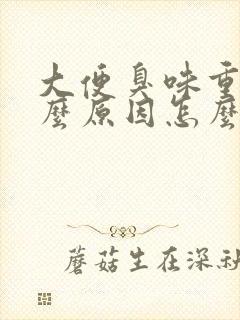 大便臭味重
麼原因怎麼
蘑菇生在深